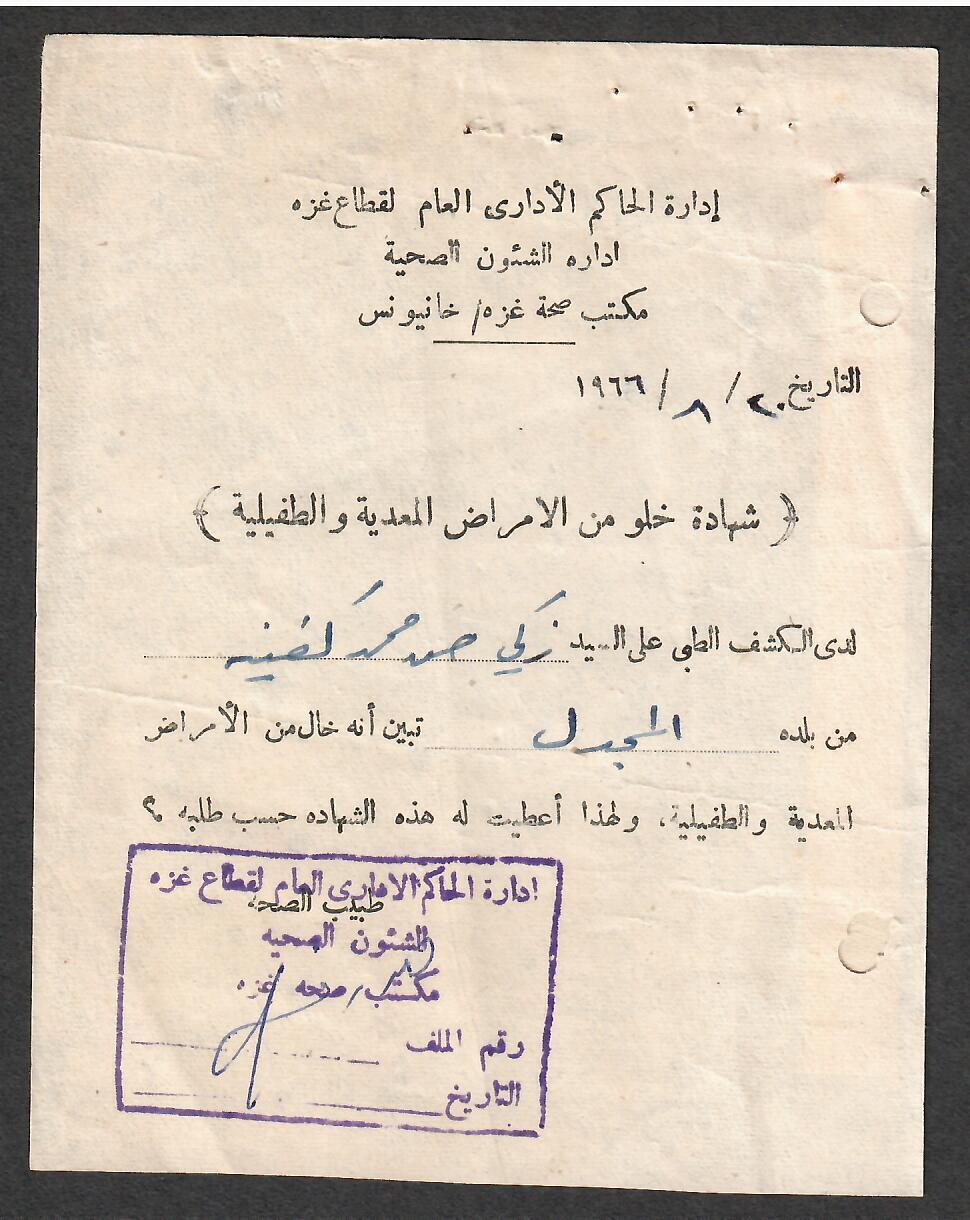 إدارة الحاكم الأدارى العام لقطاع غزه
اداره الشئون الصحية
مكتب صحة غزه/ خانيونس
التاريخ ٢٠ / ٨ / ١٩٦٦
( شهادة خلو من الامراض المعدية والطفيلية )
لدى الكشف الطبى على السيد زكي حسن محمد
من بلده المجدل تبين أنه خال من الأمراض
المعدية والطفيلية، ولهذا أعطيت له هذه الشهاده حسب طلبه ؟
طبيب الصحة
ادارة الحاكم الادارى العام لقطاع غزه
الشئون الصحيه
مكتب صحه غزه
رقم الملف
التاريخ